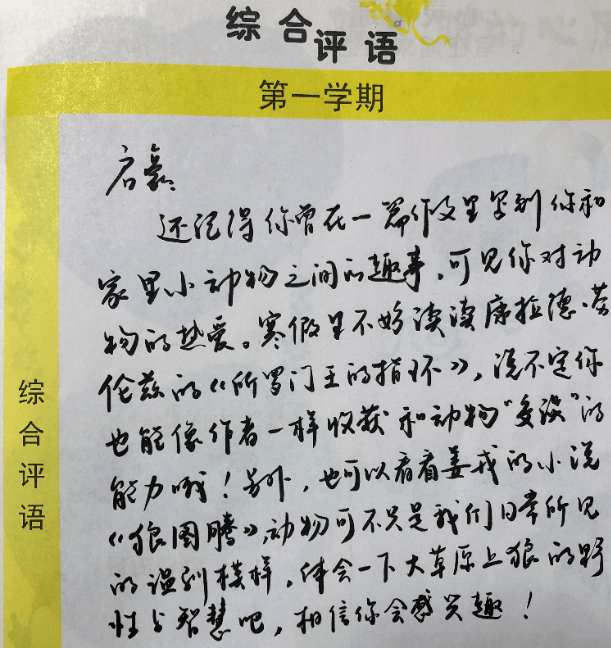 综合评语
第一学期
综合评语
启豪:
还记得你曾在一篇作文里写到你和
家里小动物之间的趣事，可见你对动
物的热爱。寒假里不妨读读康拉德·劳
伦兹的《所罗门王的指环》，说不定你
也能像作者一样收获和动物“交谈”的
能力哦！另外，也可以看看姜戎的小说
《狼图腾》，动物可不只是我们日常所见
的温驯模样，体会一下大草原上狼的野
性与智慧吧，相信你会感兴趣！